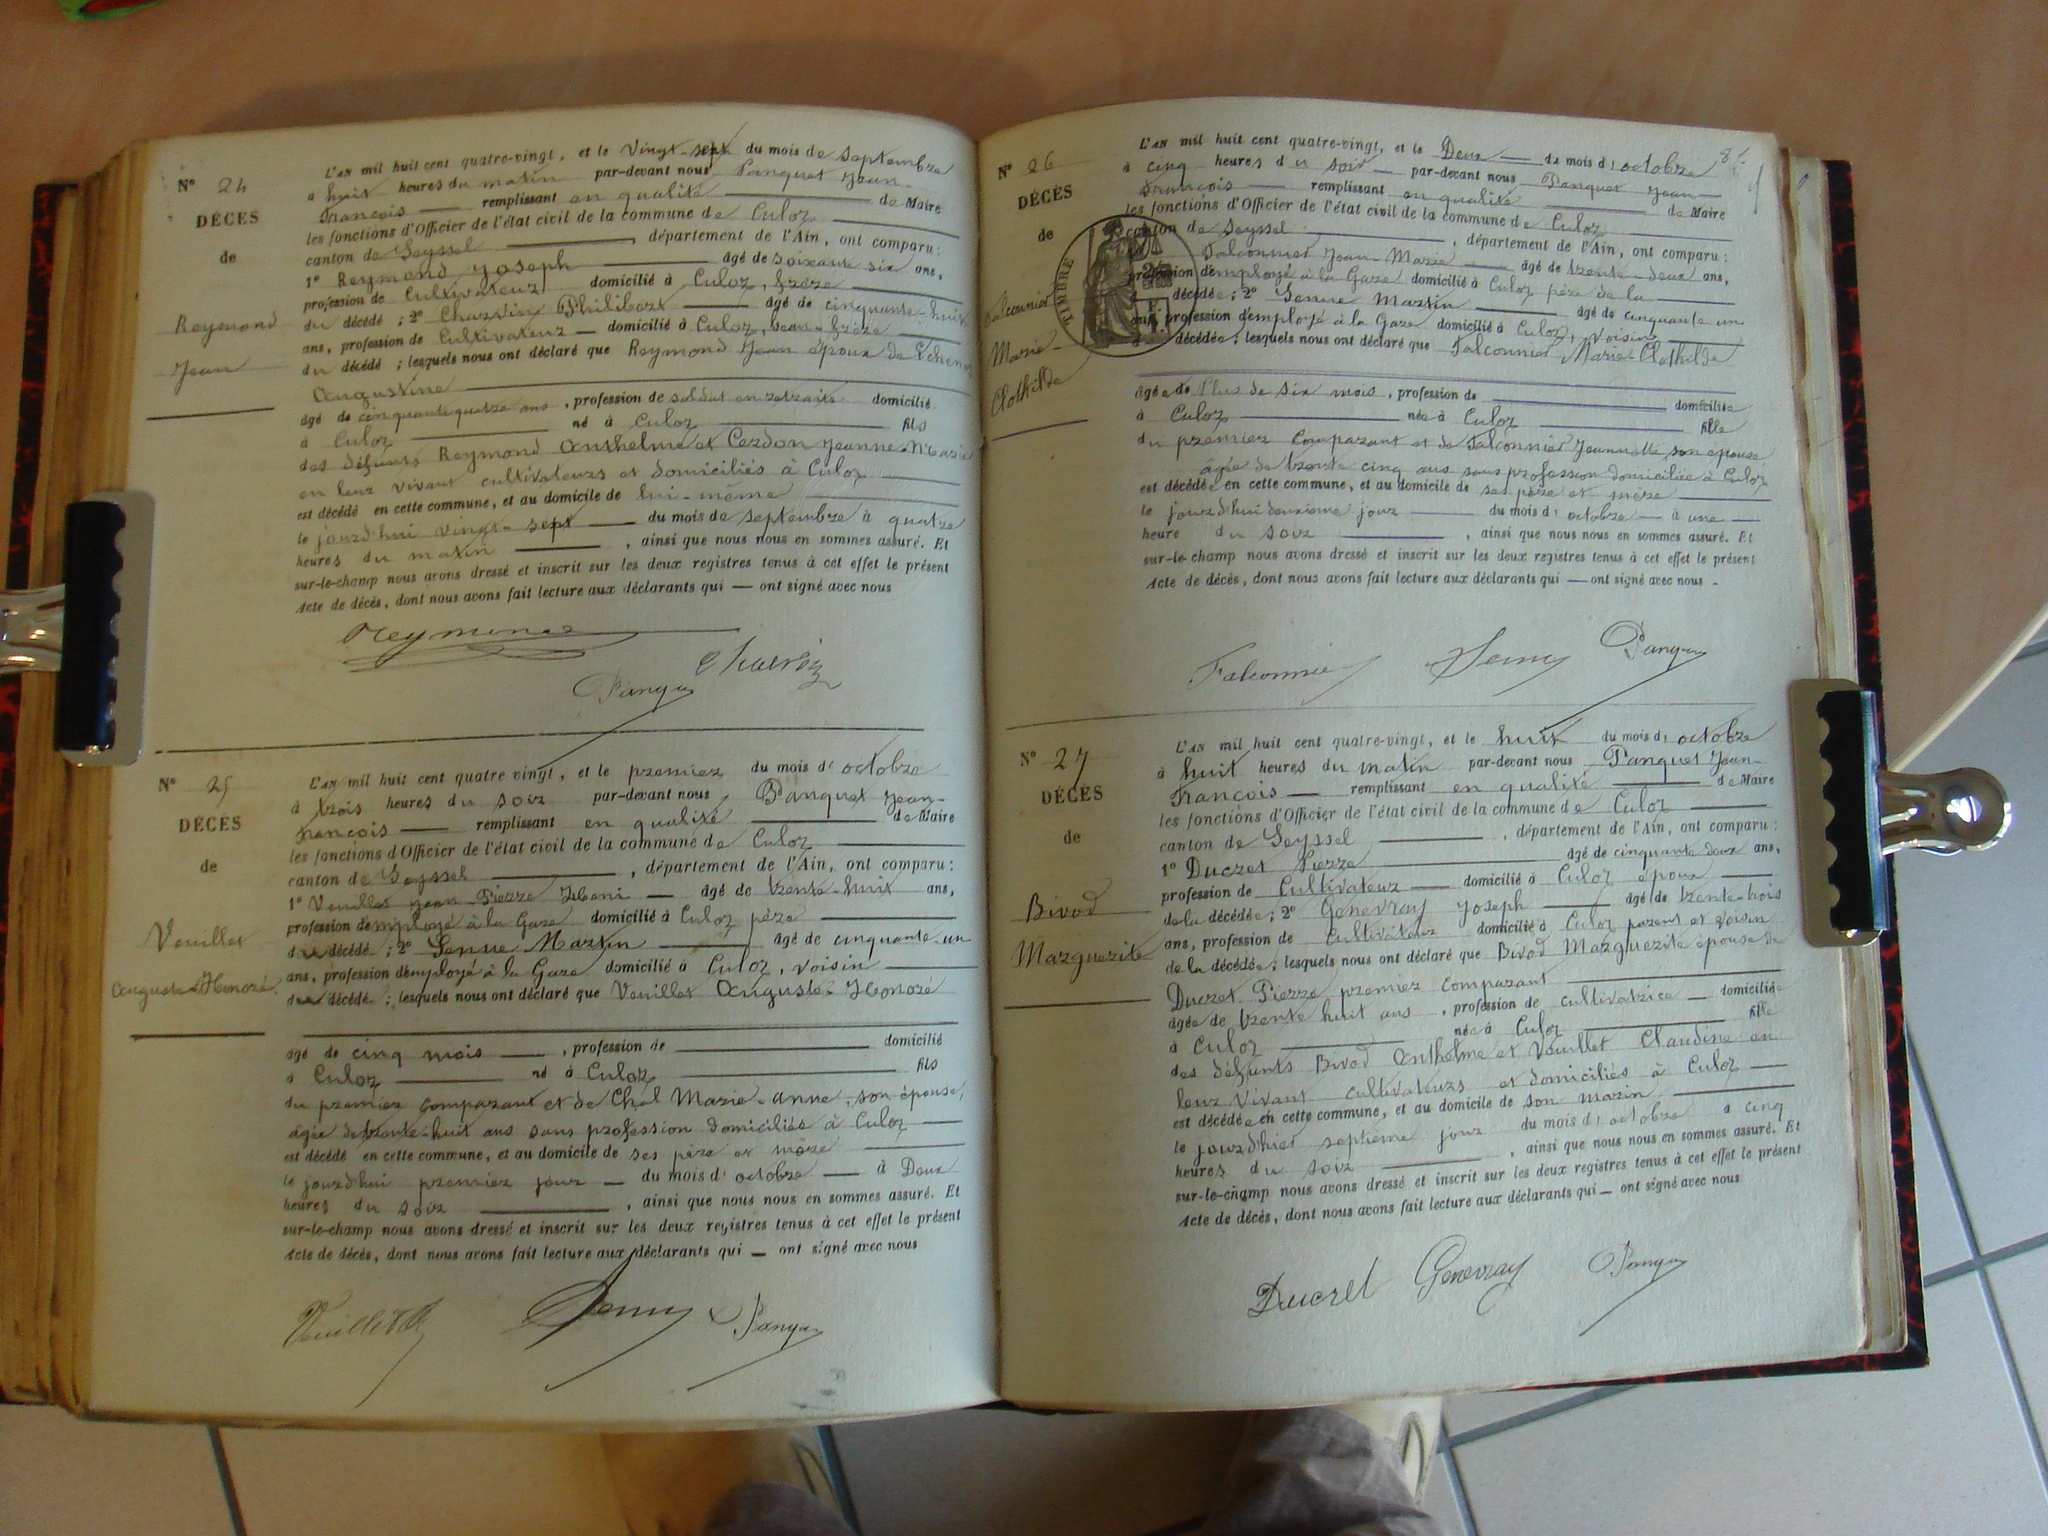 N° 24
DÉCÈS
de
Reymond
Jean
L'AN mil huit cent quatre-vingt, et le Vingt-sept du mois de septembre
à huit heures du matin par-devant nous Panquet Jean-
François remplissant en qualité de Maire
les fonctions d'Officier de l'état civil de la commune de Culoz
canton de Seyssel, département de l'Ain, ont comparu:
1° Reymond Joseph âgé de soixante six ans,
profession de Cultivateur domicilié à Culoz, frère
du décédé; 2° Charvin Philibert âgé de cinquante-huit
ans, profession de Cultivateur domicilié à Culoz, beau-frère
du décédé; lesquels nous ont déclaré que Reymond Jean époux de
Augustine
âgé de cinquante quatre ans, profession de soldat en retraite domicilié
à Culoz né à Culoz fils
des défunts Reymond Anthelme et Cerdon Jeanne-Marie
en leur vivant cultivateurs et domiciliés à Culoz
est décédé en cette commune, et au domicile de lui-même
le jourd'hui vingt-sept du mois de septembre à quatre
heures du matin, ainsi que nous nous en sommes assuré. Et
sur-le-champ nous avons dressé et inscrit sur les deux registres tenus à cet effet le présent
Acte de décès, dont nous avons fait lecture aux déclarants qui — ont signé avec nous
Reymond
Charvin
Panquet
N° 25
DÉCÈS
de
Veuillet
Auguste-Honoré
L'AN mil huit cent quatre vingt, et le premier du mois d'octobre
à trois heures du soir par-devant nous Panquet Jean-
François remplissant en qualité de Maire
les fonctions d'Officier de l'état civil de la commune de Culoz
canton de Seyssel, département de l'Ain, ont comparu:
1° Veuillet Jean Pierre âgé de trente-huit ans,
profession d'employé à la Gare domicilié à Culoz père
du décédé; 2° Senne Martin âgé de cinquante-un
ans, profession d'employé à la Gare domicilié à Culoz, voisin
du décédé; lesquels nous ont déclaré que Veuillet Auguste-Honoré
âgé de cinq mois, profession de domicilié
à Culoz né à Culoz fils
du premier comparant et de Chal Marie-Anne, son épouse,
âgée de trente-huit ans sans profession domiciliés à Culoz
est décédé en cette commune, et au domicile de ses père et mère
le jourd'hui premier jour du mois d'octobre à Deux
heures du soir, ainsi que nous nous en sommes assuré. Et
sur-le-champ nous avons dressé et inscrit sur les deux registres tenus à cet effet le présent
Acte de décès, dont nous avons fait lecture aux déclarants qui — ont signé avec nous
Veuillet
Panquet
N° 26
DÉCÈS
de
Falconnier
Marie-
Clothilde
TIMBRE
L'AN mil huit cent quatre-vingt, et le Deux du mois d'octobre
à cinq heures du soir par-devant nous Panquet Jean-
François remplissant en qualité de Maire
les fonctions d'Officier de l'état civil de la commune de Culoz
canton de Seyssel, département de l'Ain, ont comparu:
Falconnier Jean Marie âgé de trente-deux ans,
profession d'employé à la Gare domicilié à Culoz père de la
décédée; 2° Senne Martin âgé de cinquante un
ans, profession d'employé à la Gare domicilié à Culoz, voisin
décédée; lesquels nous ont déclaré que Falconnier Marie-Clothilde
âgée de Plus de six mois, profession de domiciliée
à Culoz née à Culoz fille
du premier comparant et de Falconnier Jeannette, son épouse
âgée de trente cinq ans sans profession domiciliée à Culoz
est décédée en cette commune, et au domicile de ses père et mère
le jourd'hui deuxième jour du mois d'octobre à une
heure du soir, ainsi que nous nous en sommes assuré. Et
sur-le-champ nous avons dressé et inscrit sur les deux registres tenus à cet effet le présent
Acte de décès, dont nous avons fait lecture aux déclarants qui — ont signé avec nous
Falconnier
Panquet
N° 27
DÉCÈS
de
Bivod
Marguerite
L'AN mil huit cent quatre-vingt, et le huit du mois d'octobre
à huit heures du matin par-devant nous Panquet Jean-
François remplissant en qualité de Maire
les fonctions d'Officier de l'état civil de la commune de Culoz
canton de Seyssel, département de l'Ain, ont comparu:
1° Ducret Pierre âgé de cinquante deux ans,
profession de Cultivateur domicilié à Culoz époux
de la décédée; 2° Genevray Joseph âgé de trente-trois
ans, profession de Cultivateur domicilié à Culoz parent et voisin
de la décédée; lesquels nous ont déclaré que Bivod Marguerite épouse de
Ducret Pierre premier comparant
âgée de trente huit ans, profession de cultivatrice domiciliée
à Culoz née à Culoz fille
des défunts Bivod Anthelme et Veuillet Claudine en
leur vivant cultivateurs et domiciliés à Culoz
est décédée en cette commune, et au domicile de son marin
le jourd'hier septième jour du mois d'octobre à cinq
heures du soir, ainsi que nous nous en sommes assuré. Et
sur-le-champ nous avons dressé et inscrit sur les deux registres tenus à cet effet le présent
Acte de décès, dont nous avons fait lecture aux déclarants qui — ont signé avec nous
Ducret Genevray Panquet